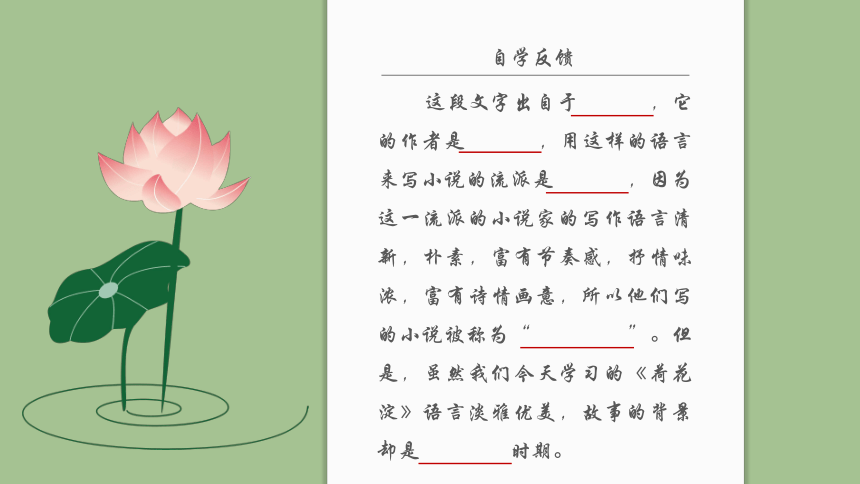 自学反馈
这段文字出自于________，它
的作者是________，用这样的语言
来写小说的流派是________，因为
这一流派的小说家的写作语言清
新，朴素，富有节奏感，抒情味
浓，富有诗情画意，所以他们写
的小说被称为“__________”。但
是，虽然我们今天学习的《荷花
淀》语言淡雅优美，故事的背景
却是_________时期。